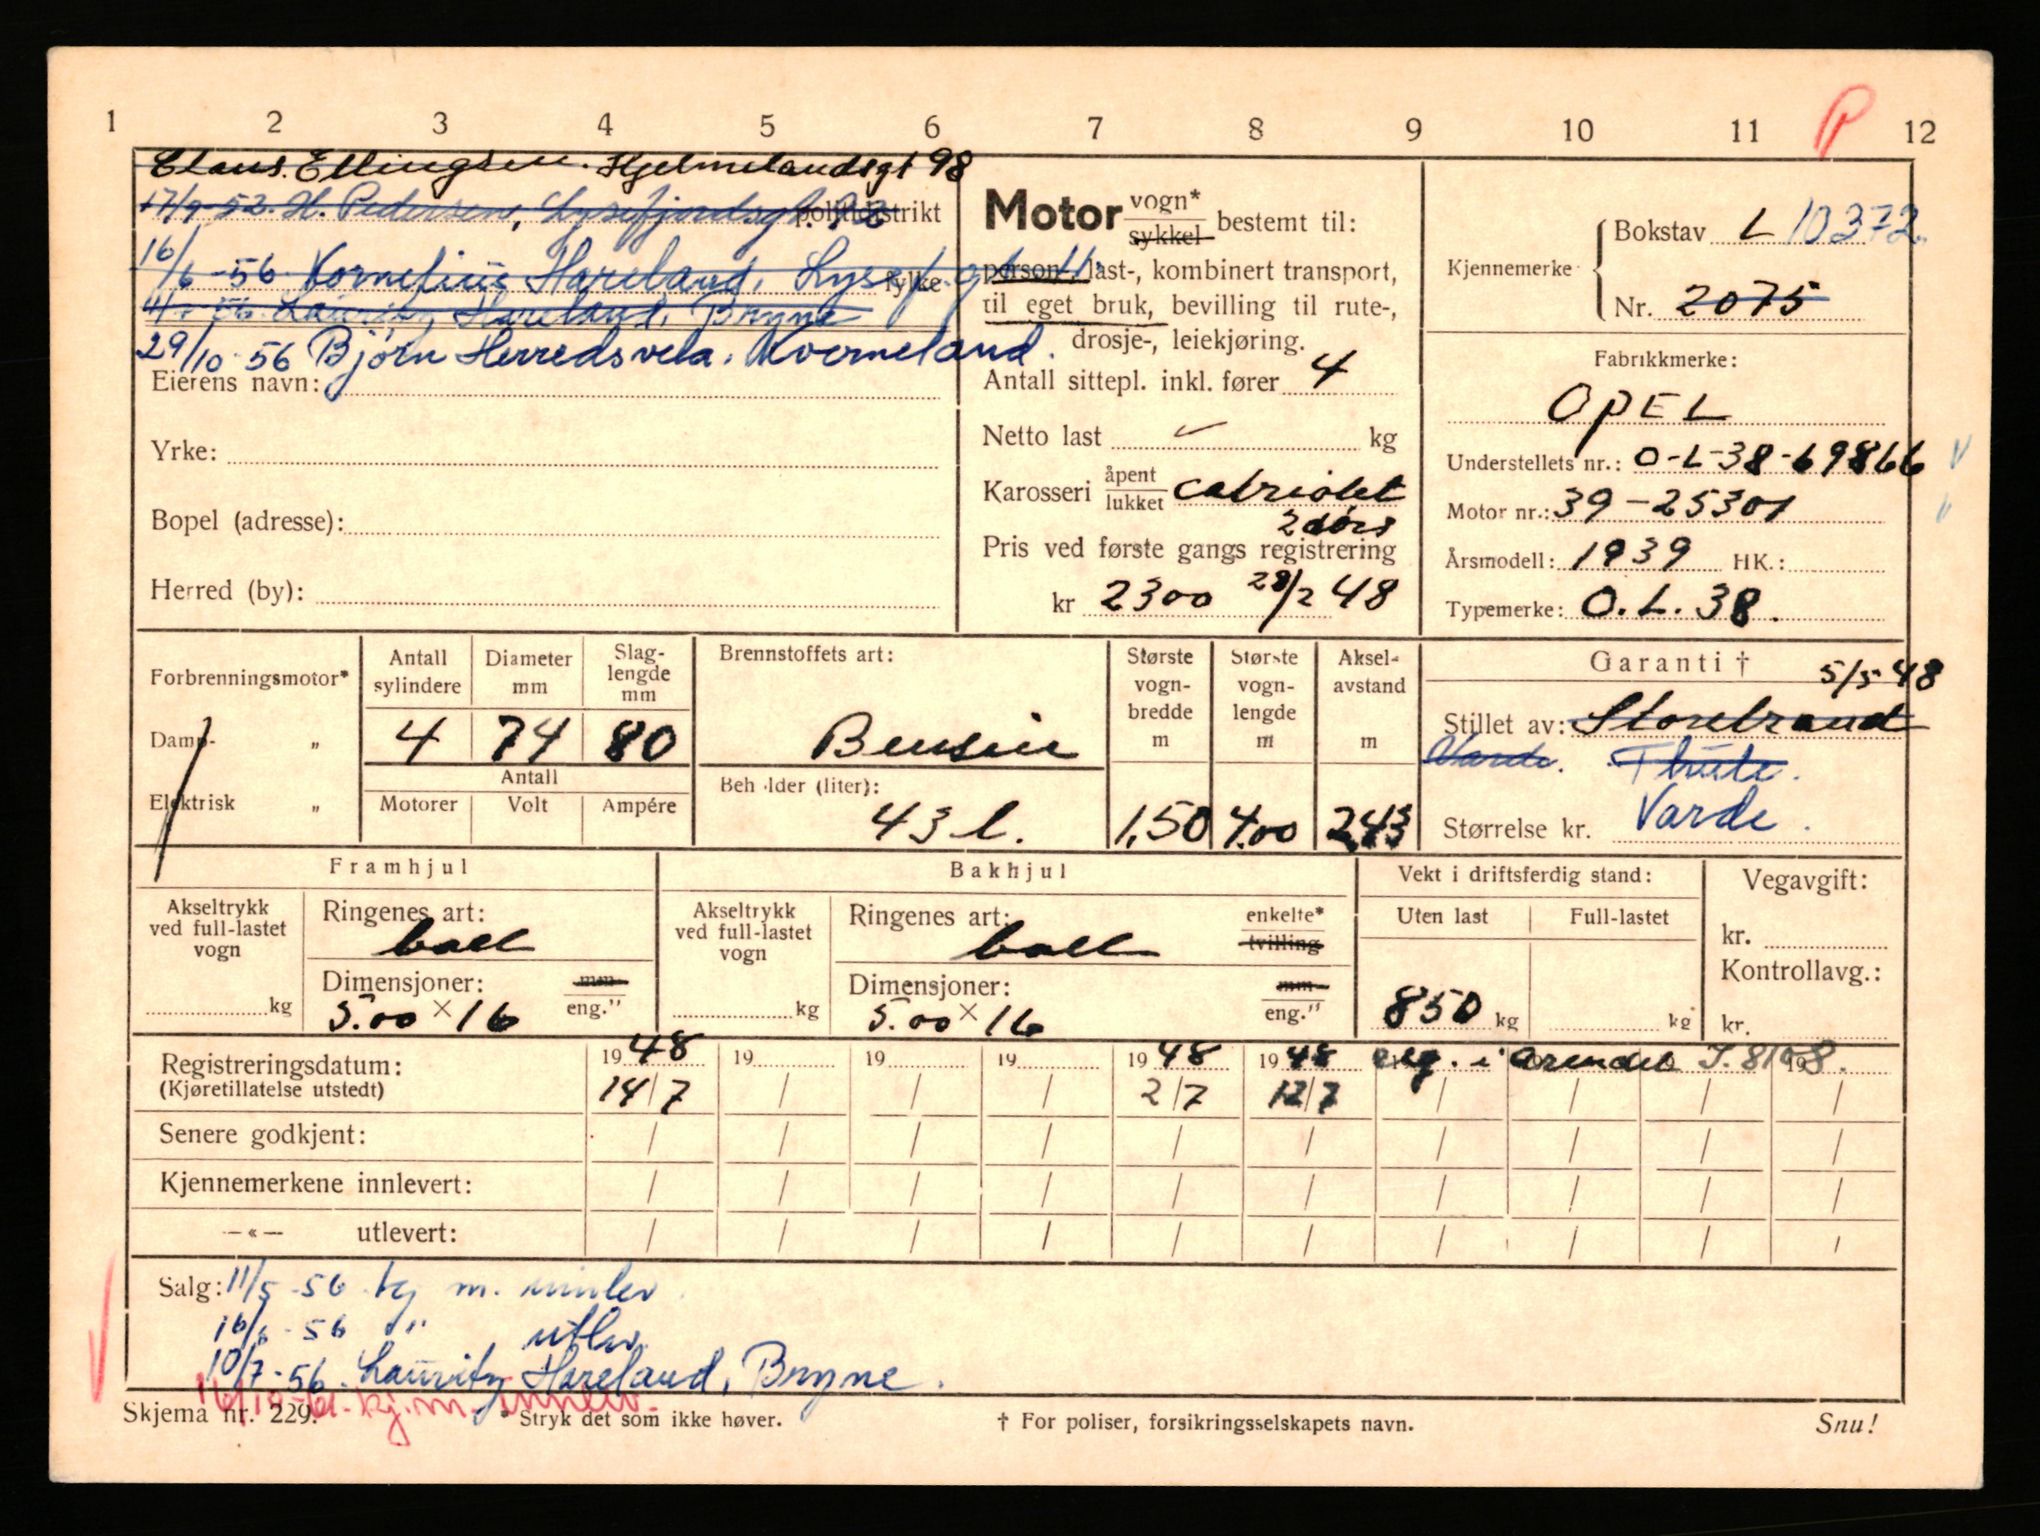 1 2 3 4 5 6 7 8 9 10 11 12
P
Claus. Ellingsen. Hjelmelandsgt 98
17/9-52. H. Pedersen, Lysefjordsgt. politidistrikt
16/6-56. Kornelius Hareland, Lysefj.gt. 11. fylke
56. Lauritz Hareland, Bryne
29/10-56 Bjørn Herredsvela. Kverneland.
Eierens navn:
Yrke:
Bopel (adresse):
Herred (by):
Motor vogn* sykkel bestemt til:
person-, last-, kombinert transport,
til eget bruk, bevilling til rute-,
drosje-, leiekjøring.
Antall sittepl. inkl. fører 4
Netto last kg
Karosseri åpent lukket cabriolet
2 dørs
Pris ved første gangs registrering
kr 2300 28/2 48
Kjennemerke
Bokstav L 10372
Nr. 2075
Fabrikkmerke:
OPEL
Understellets nr.: O-L-38-69866
Motor nr.: 39-25301
Årsmodell: 1939 HK.:
Typemerke: O.L.38.
Forbrenningsmotor*
Damp- „
Elektrisk „
Antall sylindere
Diameter mm
Slaglengde mm
4 74 80
Antall
Motorer Volt Ampére
Brennstoffets art:
Bensin
Beholder (liter):
43 l.
Største vognbredde m
Største vognlengde m
Akselavstand m
1,50 4.00 2,43
Garanti †
5/5-48
Stillet av: Storebrand
Varde. Thule.
Varde.
Størrelse kr.
Framhjul
Akseltrykk ved full-lastet vogn
kg
Ringenes art:
ball
Dimensjoner: mm eng."
5.00 × 16
Bakhjul
Akseltrykk ved full-lastet vogn
kg
Ringenes art: enkelte* tvilling
ball
Dimensjoner: mm eng."
5.00 × 16
Vekt i driftsferdig stand:
Uten last Full-lastet
850 kg kg
Vegavgift:
kr.
Kontrollavg.:
kr.
Registreringsdatum: 19 48 19 19 19 19 48 19 48 reg. i Arendal I. 8168.
(Kjøretillatelse utstedt) 14/7 / / / 2/7 12/7 / / / /
Senere godkjent: / / / / / / / / / /
Kjennemerkene innlevert: / / / / / / / / / /
—«— utlevert: / / / / / / / / / /
Salg: 11/5-56 kj m. innlev.
16/6-56 " utlev.
10/7-56. Lauritz Hareland, Bryne.
kj.m. innlev.
Skjema nr. 229.
* Stryk det som ikke høver.
† For poliser, forsikringsselskapets navn.
Snu!